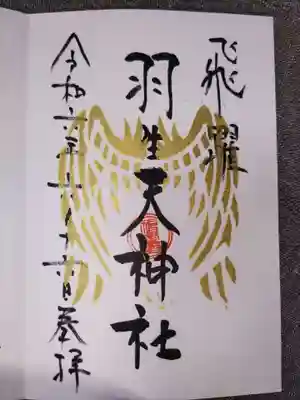 飛躍
羽生天神社
令和六年十一月十六日奉拝